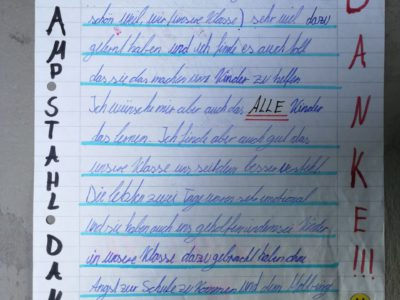 AMP•STAHL•DAN
schön weil wir (unsere Klasse) sehr viel dazu
gelernt haben und ich finde es auch toll
das sie das machen um Kinder zu helfen
Ich wünsche mir aber auch das ALLE Kinder
das lernen. Ich finde aber auch gut das
unsere Klasse uns seitdem besser versteht
Die letzten zwei Tage waren sehr emotional
und sie haben auch uns geholfen indem sie Kinder
in unsere Klasse dazu gebracht haben ohne
Angst zur Schule zu kommen und dem Mobbing
DANKE!!!